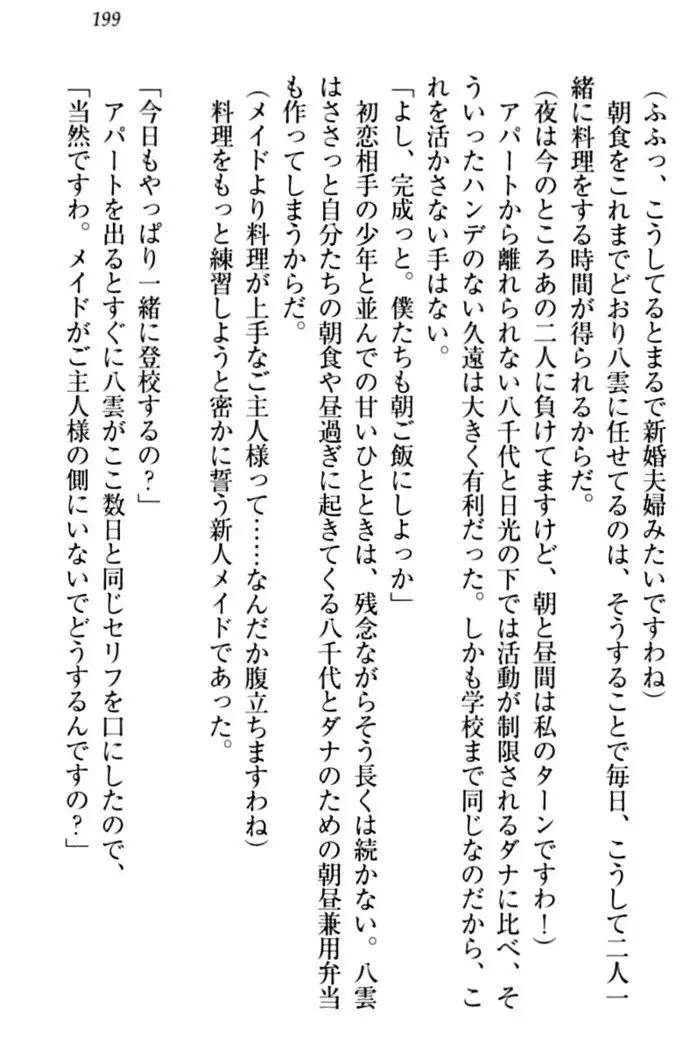 199
(ふふっ、こうしてるとまるで新婚夫婦みたいですわね)
　朝食をこれまでどおり八雲に任せてるのは、そうすることで毎日、こうして二人一
緒に料理をする時間が得られるからだ。
(夜は今のところあの二人に負けてますけど、朝と昼間は私のターンですわ！)
　アパートから離れられない八千代と日光の下では活動が制限されるダナに比べ、そ
ういったハンデのない久遠は大きく有利だった。しかも学校まで同じなのだから、こ
れを活かさない手はない。
「よし、完成っと。僕たちも朝ご飯にしよっか」
　初恋相手の少年と並んでの甘いひとときは、残念ながらそう長くは続かない。八雲
はささっと自分たちの朝食や昼過ぎに起きてくる八千代とダナのための朝昼兼用弁当
も作ってしまうからだ。
(メイドより料理が上手なご主人様って……なんだか腹立ちますわね)
　料理をもっと練習しようと密かに誓う新人メイドであった。
「今日もやっぱり一緒に登校するの？」
　アパートを出るとすぐに八雲がここ数日と同じセリフを口にしたので、
「当然ですわ。メイドがご主人様の側にいないでどうするんですの？」